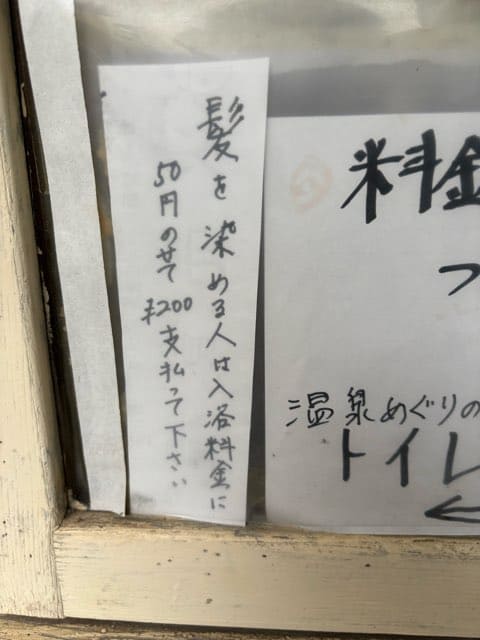 髪を染める人は入浴料金に
50円のせて¥200支払って下さい
料金
つ
温泉めぐりの
トイレ
←